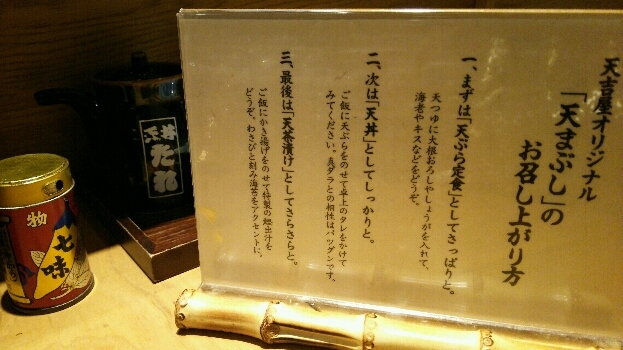 天吉屋オリジナル
「天まぶし」の
お召し上がり方
一、まずは「天ぷら定食」としてさっぱりと。
天つゆに大根おろしやしょうがを入れて、
海老やキスなどをどうぞ。
二、次は「天丼」としてしっかりと。
ご飯に天ぷらをのせて卓上のタレをかけて
みてください。真ダラとの相性はバツグンです。
三、最後は「天茶漬け」としてさらさらと。
ご飯にかき揚げをのせて特製の鰹出汁を
どうぞ。わさびと刻み海苔をアクセントに。
天丼
たれ
物
七味